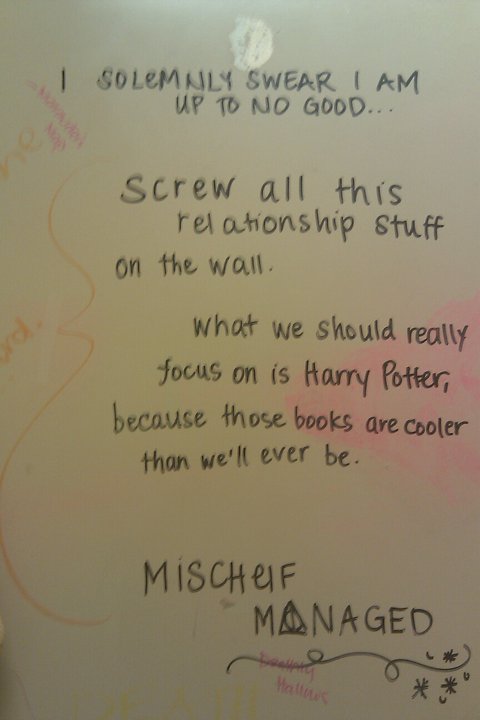 I SOLEMNLY SWEAR I AM
UP TO NO GOOD...
Marauders
Map
Screw all this
relationship stuff
on the wall.
what we should really
focus on is Harry Potter,
because those books are cooler
than we'll ever be.
MISCHeIF
MANAGED
Deathly
Hallows